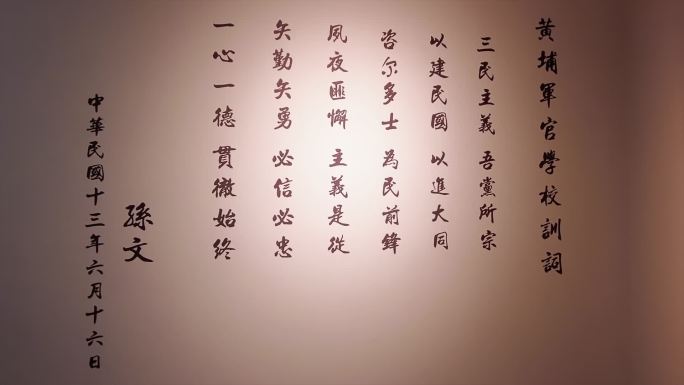 黃埔軍官學校訓詞
三民主義 吾黨所宗
以建民國 以進大同
咨尔多士 為民前鋒
夙夜匪懈 主義是從
矢勤矢勇 必信必忠
一心一德 貫徹始終
孫文
中華民國十三年六月十六日